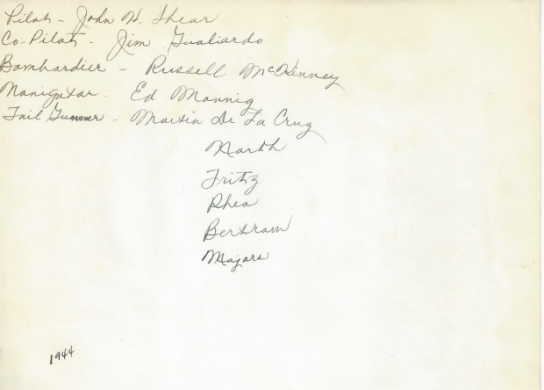 Pilot - John H. Shear
Co-Pilot - Jim Gualiardo
Bombardier - Russell McKenney
Manigator - Ed Mannig
Tail Gunner - Martin De La Cruz
North
Fritz
Rhea
Bertram
Majors
1944